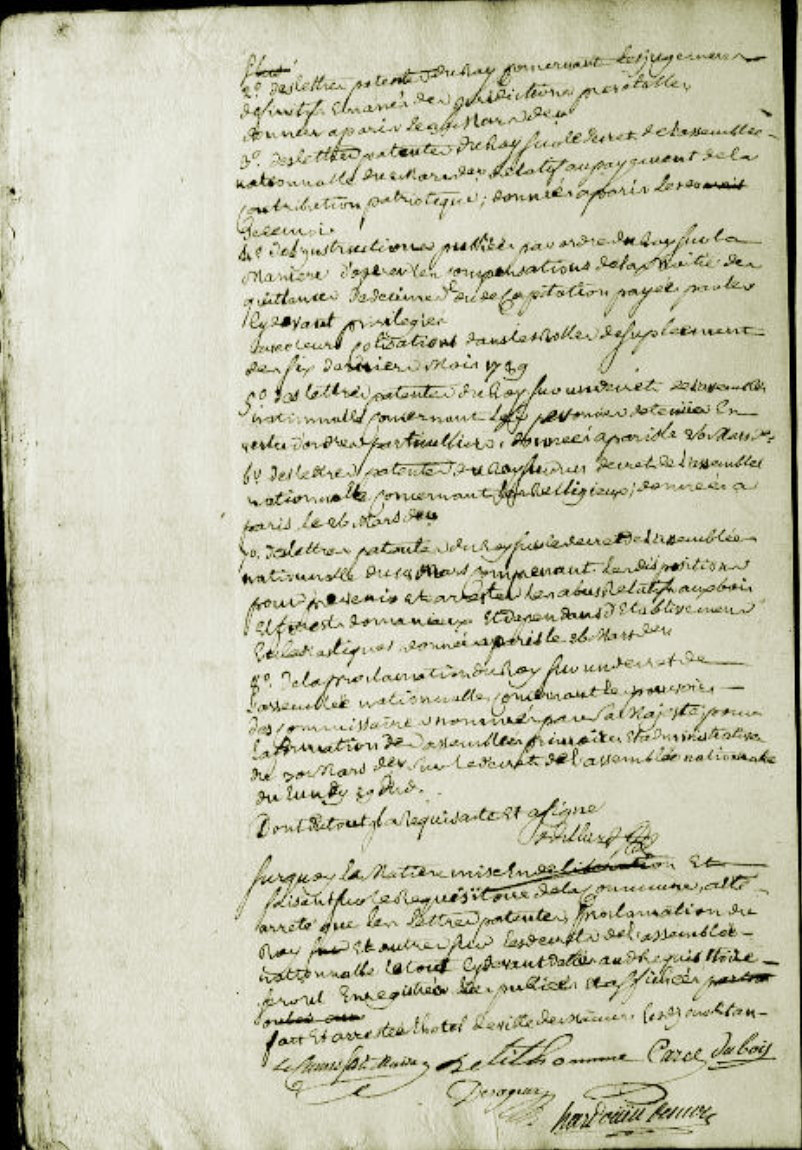 2o. des lettres patentes du Roy concernant les jugemens
definitifs emanés des jurisdictions prevotalles
donnees a paris le mars der
3o. des lettres patentes du Roy sur le decret de l'assemblée
nationnalle du mars der relatif au payement de la
contribution patriotique; donnéés a paris les
4o. des ynstructions publiées par ordre du Roy sur la
Maniere d'operer les compensations de la Moitié des
quittances de decimes et de Capitation payée par les
Cydevant privilegiés
avec leurs cotisations dans les Rolles de suplement
des six derniers Mois 1789
5o. des lettres patentes du Roy sur un decret de l'assemblée
nationnalle concernant les personnes detenues En
vertu d'ordres particulliers, donnéés a paris le 26 Mars der
6o. des lettres patentes du Roy sur un decret de l'assemblée
nationnalle concernant les Religieux; donnéés a
paris le 26 Mars der
7o. des lettres patentes du Roy sur le decret de l'assemblée
nationnalle du Mars comprenant les dispositions
pour prevenir et arrester les abus Relatifs aux bois
Et forest domaniaux Et dependans d'Etablissemens
Ecclesiastiques donnéés a paris le 26 Mars der
8o. de la proclamation du Roy sur un decret de
l'assemblée nationnalle concernant le pouvoir
des commissaires nommés par sa Majesté pour
la formation des assemblées primaires Et administratives
du 30 Mars der sur le decret de l'assemblée nationnale
du lundy 29 dud.
Dont du tout il a Requis acte Et a signé
Surquoy la Matiere mise En deliberation Et
faisant sur le Requisitoire de la Commune, a été
arreté que les lettres patentes, proclamation du
Roy Et autres sur les decrets de l'assemblée
nationnalle le tout Cydevant datés aud Requisitoire
seront Enregistrés lus publiés Et affichés
fait Et arresté a l'hotel de ville de
Petit homme Carré Dubois
hardouin